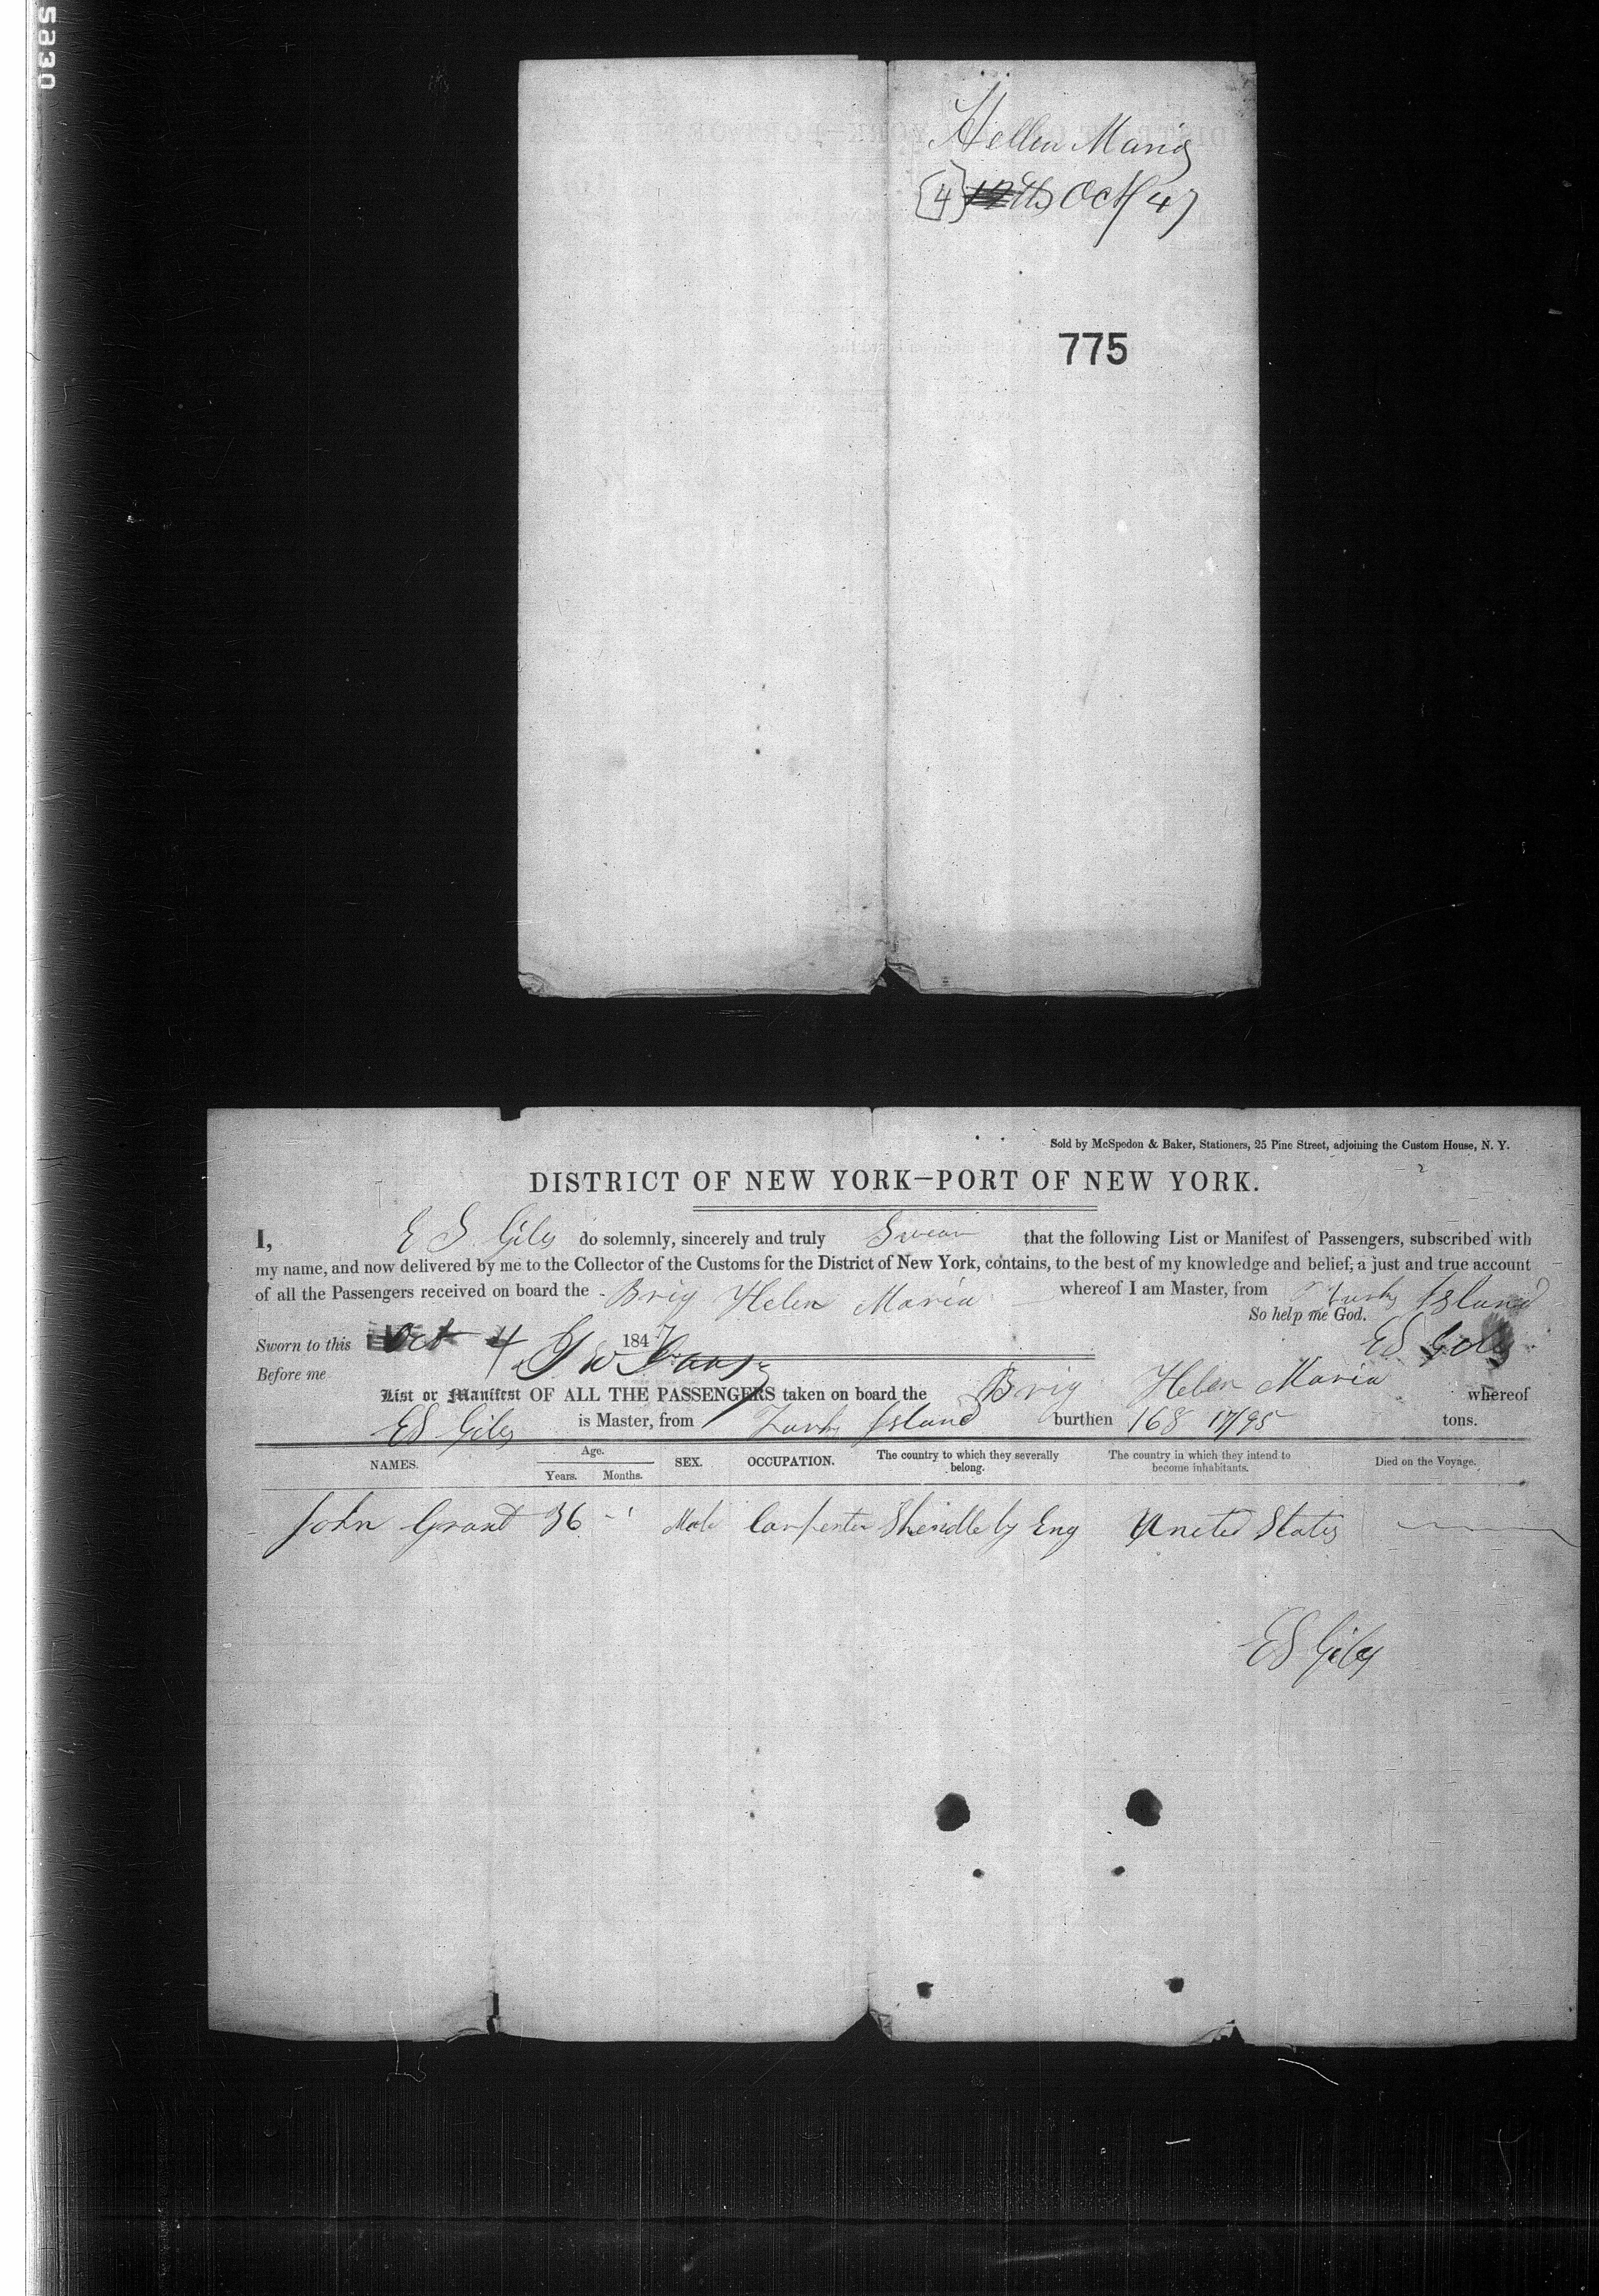 Hellen Maria
(4) 12th Oct 47
775
Sold by McSpedon & Baker, Stationers, 25 Pine Street, adjoining the Custom House, N. Y.
DISTRICT OF NEW YORK—PORT OF NEW YORK.
I, E S Giles do solemnly, sincerely and truly Swear that the following List or Manifest of Passengers, subscribed with
my name, and now delivered by me to the Collector of the Customs for the District of New York, contains, to the best of my knowledge and belief, a just and true account
of all the Passengers received on board the Brig Helen Maria whereof I am Master, from Turks Island
So help me God.
Sworn to this Oct 4 1847 ES Giles
Before me
List or Manifest OF ALL THE PASSENGERS taken on board the Brig Helen Maria whereof
ES Giles is Master, from Turks Island burthen 168 17/95 tons.
NAMES. Age. Years. Months. SEX. OCCUPATION. The country to which they severally belong. The country in which they intend to become inhabitants. Died on the Voyage.
John Grant 36 - Male Carpenter Eng United States
ES Giles